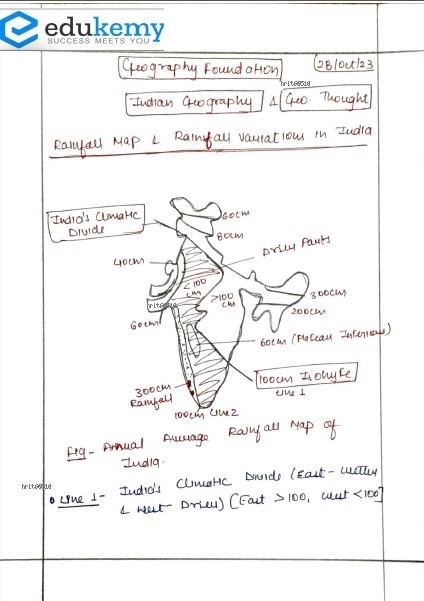 edukemy
SUCCESS MEETS YOU
Geography Foundation
28/Oct/23
hrlt66516
Indian Geography & Geo. Thought
Rainfall Map & Rainfall Variations in India
India's Climatic Divide
60cm
80cm
Drier Parts
40cm
<100 cm
>100 cm
300cm
200cm
hrlt66516
60cm
60cm (Plateau Interiors)
300cm Rainfall
100cm Isohyte
Line 1
100cm Line 2
Fig - Annual Average Rainfall Map of
India.
hrlt66516
Line 1 - India's Climatic Divide (East - Wetter
& West - Drier) [East >100, West <100]